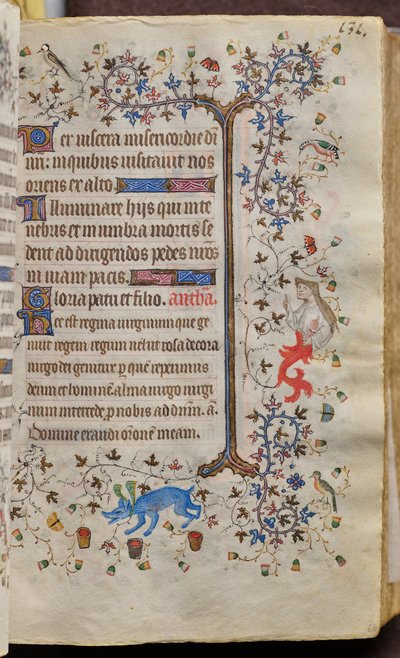 636.
Per viscera misericordie dei
nri: in quibus visitavit nos
oriens ex alto.
Illuminare hijs qui in te
nebris et in umbra mortis se
dent ad dirigendos pedes nros
in viam pacis.
Gloria patri et filio. antha.
Hec est regina virginum que ge
nuit regem regum velut rosa decora
virgo dei genitrix p quem reperimus
deum et hominem alma virgo virgi
num intercede p nobis ad dnm. a.
Domine exaudi orone meam.